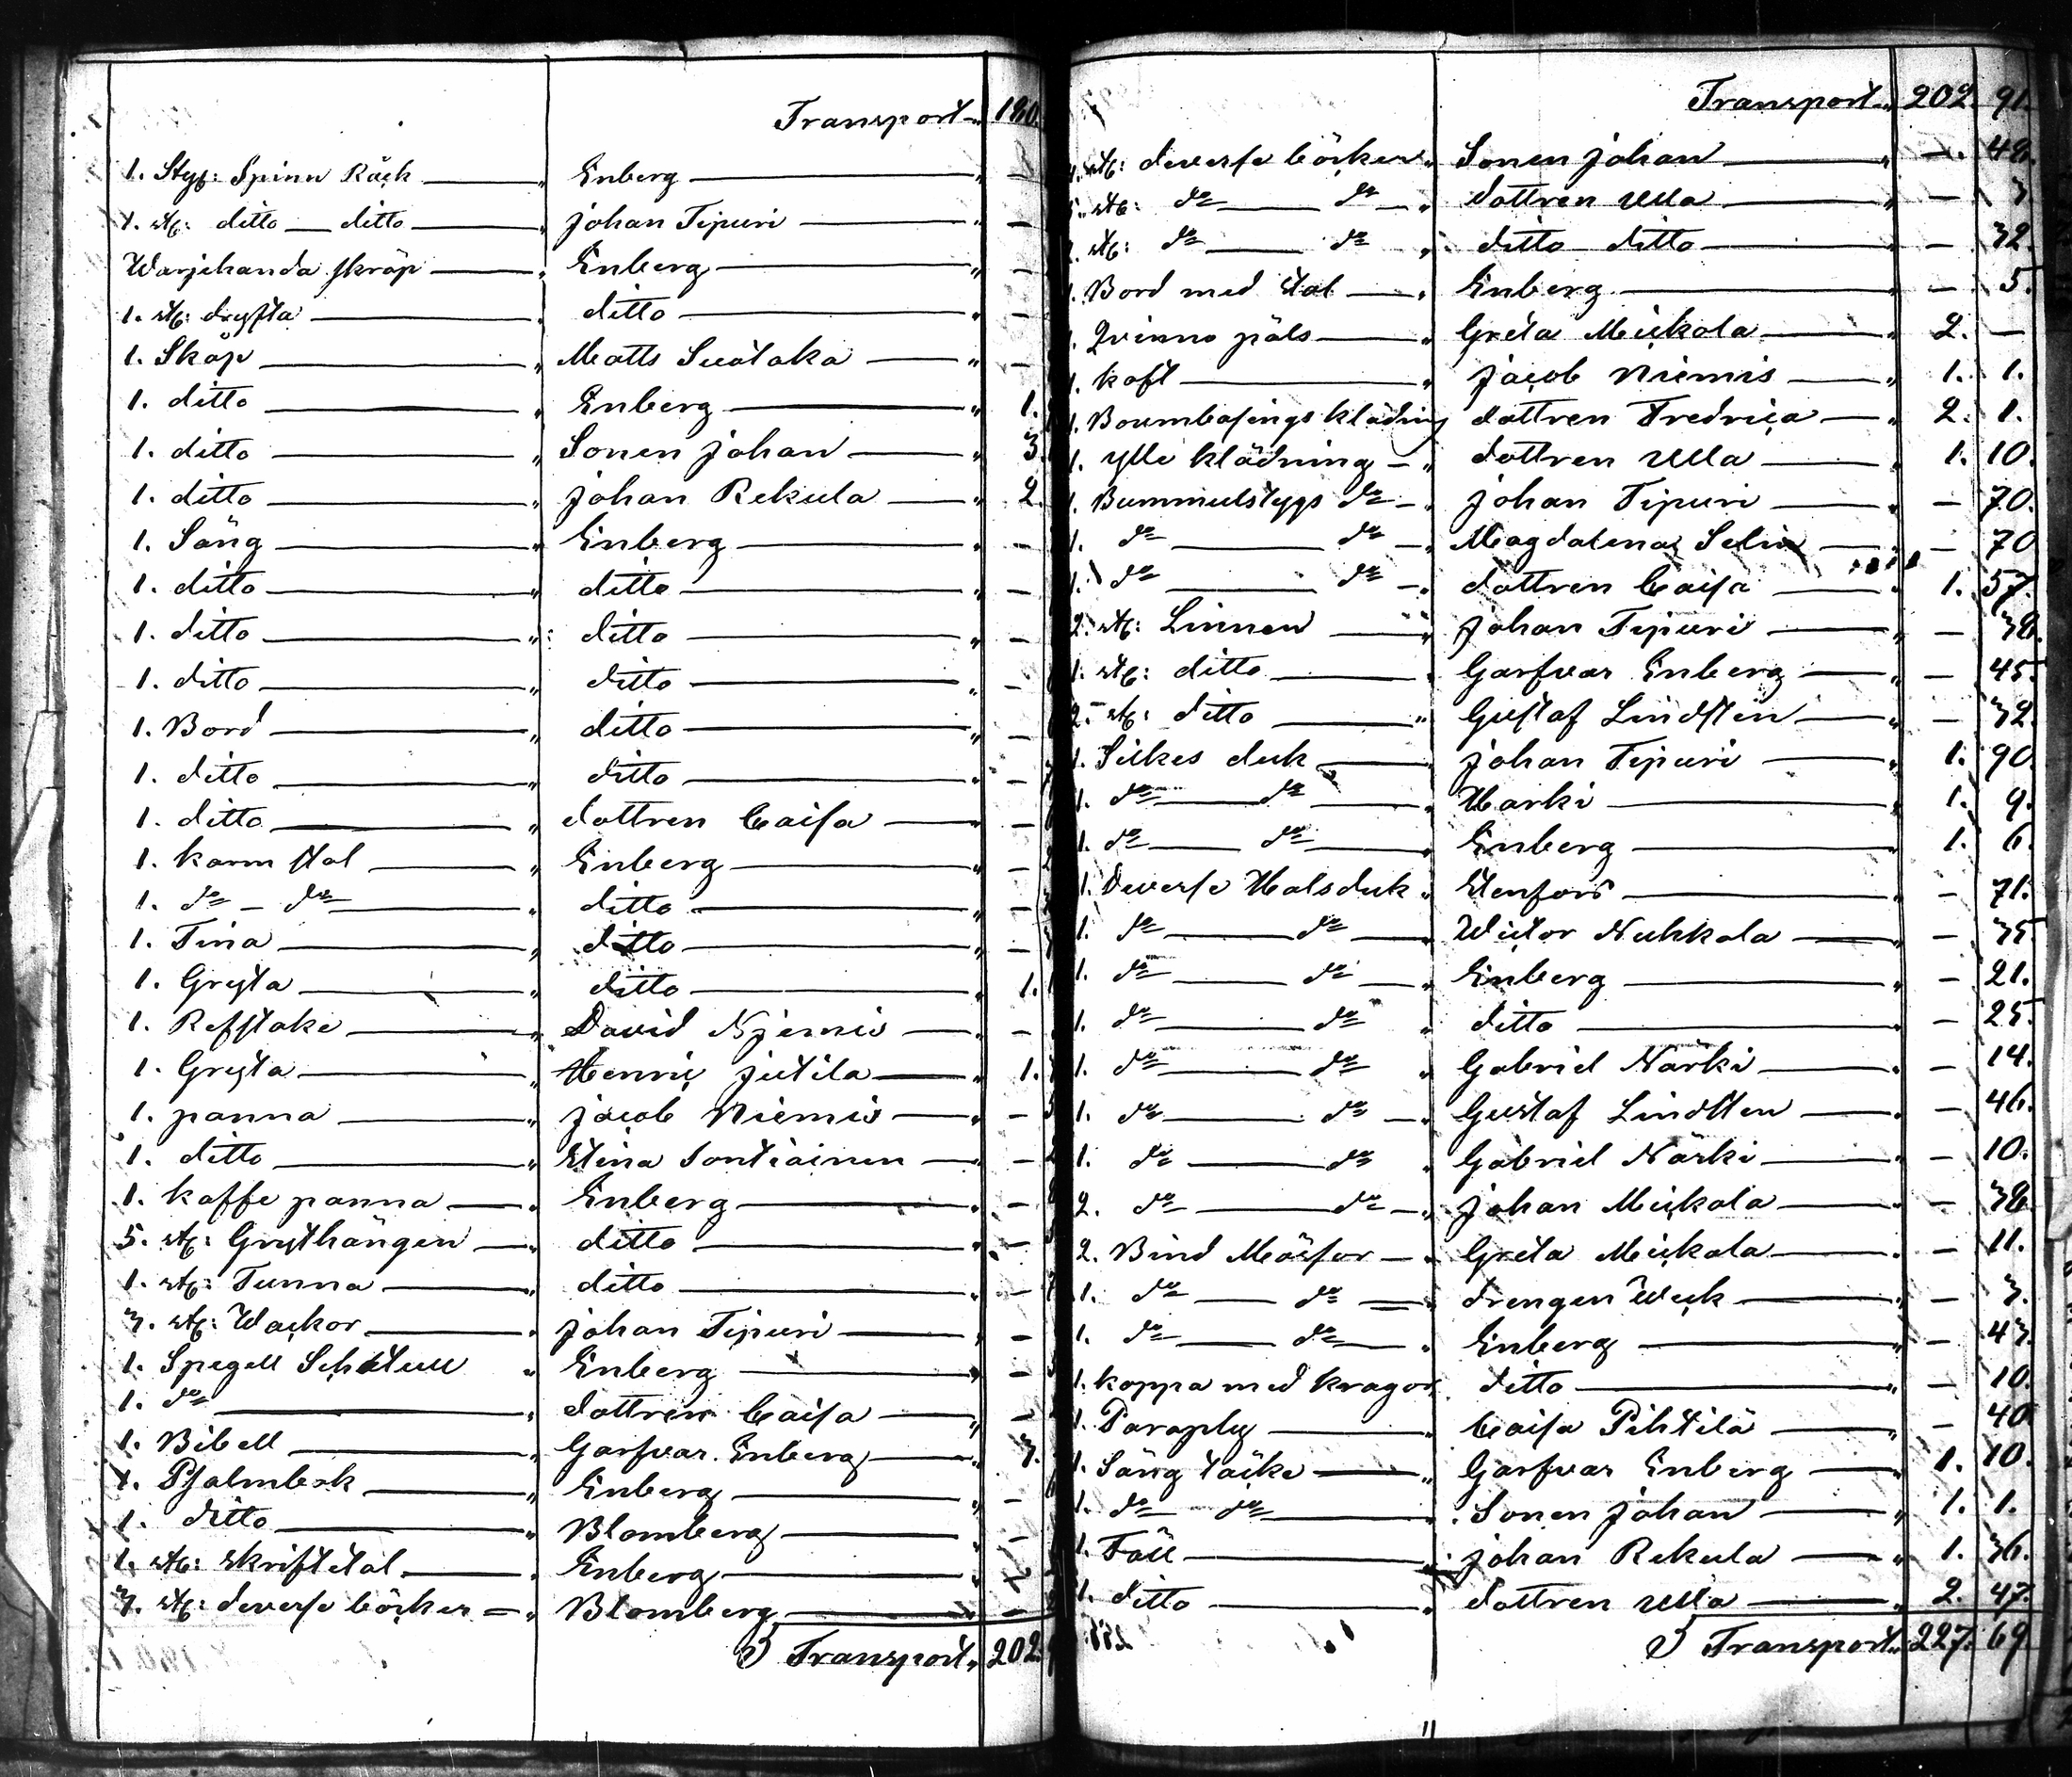 Transport 180.
1. Styk: Spinn Råck Enberg —
1. stk: ditto ditto Johan Tipuri —
Warjehanda skräp Enberg —
1. stk: drysta ditto —
1. Skåp Matts —
1. ditto Enberg 1.
1. ditto Sonen Johan 3.
1. ditto Johan Rekula 2.
1. Säng Enberg —
1. ditto ditto —
1. ditto ditto —
1. ditto ditto —
1. Bord ditto —
1. ditto ditto —
1. ditto dottren Caisa —
1. karm stol Enberg —
1. do do ditto —
1. Tina ditto —
1. Gryta ditto 1.
1. Refstake David Njemis —
1. Gryta Henric Jutila 1.
1. panna Jacob Niemis —
1. ditto Stina Sontiainen —
1. kaffe panna Enberg —
5. stk: Grythängen ditto —
1. stk: Tunna ditto —
3. stk: Wackor Johan Tipuri —
1. Spegell Enberg —
1. do dottren Caisa —
1. Bibell Garfvar Enberg 3.
1. Psalmbok Enberg —
1. ditto Blomberg —
1. stk: skriftstol Enberg —
3. stk: deverse böcker Blomberg —
Transport 202.
Transport 202. 91.
stk: deverse böcker Sonen Johan — 48.
stk: do do dottren Ulla — 3.
stk: do do ditto ditto — 32.
1. Bord med stol Enberg — 5.
1. Qvinno päls Greta Mickola 2. —
1. koft Jacob Niemis 1. 1.
1. Boumbasings klädning dottren Fredrica 2. 1.
1. ylle klädning dottren Ulla 1. 10.
1. Bummulstygs do Johan Tipuri — 70.
1. do do Magdalena Selin — 70
1. do do dottren Caisa 1. 57.
2. stk: Linnen Johan Tipuri — 38.
1. stk: ditto Garfvar Enberg — 45.
2. stk: ditto Gustaf Lindsten — 32.
1. Silkes duk Johan Tipuri 1. 90.
1. do do Harki 1. 9.
1. do do Enberg 1. 6.
1. Deverse Halsduk Stenfors — 71.
1. do do Wictor Nuhkola — 35.
1. do do Enberg — 21.
1. do do ditto — 25.
1. do do Gabriel Närki — 14.
1. do do Gustaf Lindsten — 46.
1. do do Gabriel Närki — 10.
2. do do Johan Mickola — 38
2. Bind Mössor Greta Mickola — 11.
1. do do drengen Weck — 3.
1. do do Enberg — 43.
1. kappa med kragor ditto — 10.
1. Paraply Caisa Pihtilä — 40
1. Säng täcke Garfvar Enberg 1. 10.
1. do do Sonen Johan 1. 1.
1. Fäll Johan Rekula 1. 36.
1. ditto dottren Ulla 2. 47.
Transport 227. 69